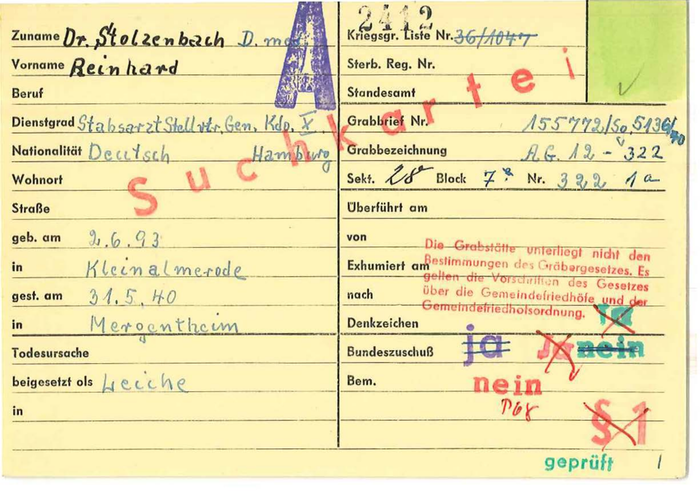 Zuname Dr. Stolzenbach D. med.
Vorname Reinhard
Beruf
Dienstgrad Stabsarzt Stellvtr. Gen. Kdo. X
Nationalität Deutsch Hamburg
Wohnort
Straße
geb. am 2.6.93
in Kleinalmerode
gest. am 31.5.40
in Mergentheim
Todesursache
beigesetzt als Leiche
in
A
Suchkartei
2412
Kriegsgr. Liste Nr. 36/1047
Sterb. Reg. Nr.
Standesamt
Grabbrief Nr. 155772/So 5136/40
Grabbezeichnung A.G. 12 - 322
Sekt. 28 Block 7 Nr. 322 1a
Überführt am
von
Exhumiert am
nach
Die Grabstätte unterliegt nicht den
Bestimmungen des Gräbergesetzes. Es
gelten die Vorschriften des Gesetzes
über die Gemeindefriedhöfe und der
Gemeindefriedhofsordnung.
Denkzeichen ja
Bundeszuschuß ja Ja nein
Bem. nein
P68
§ 1
geprüft 1